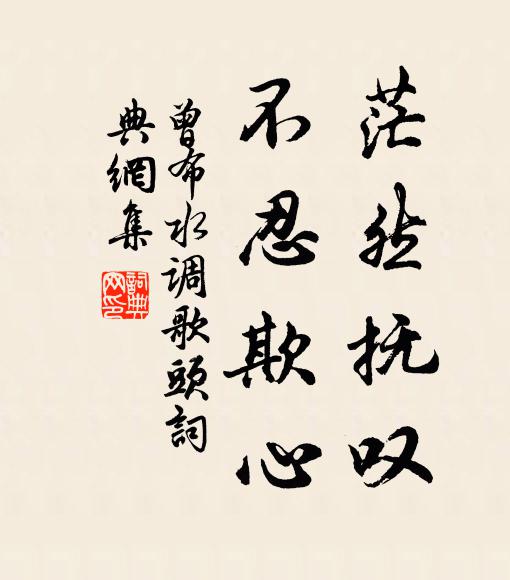 茫然抚叹
不忍欺心
曾布水调歌頭詞
典網集
詞典网印